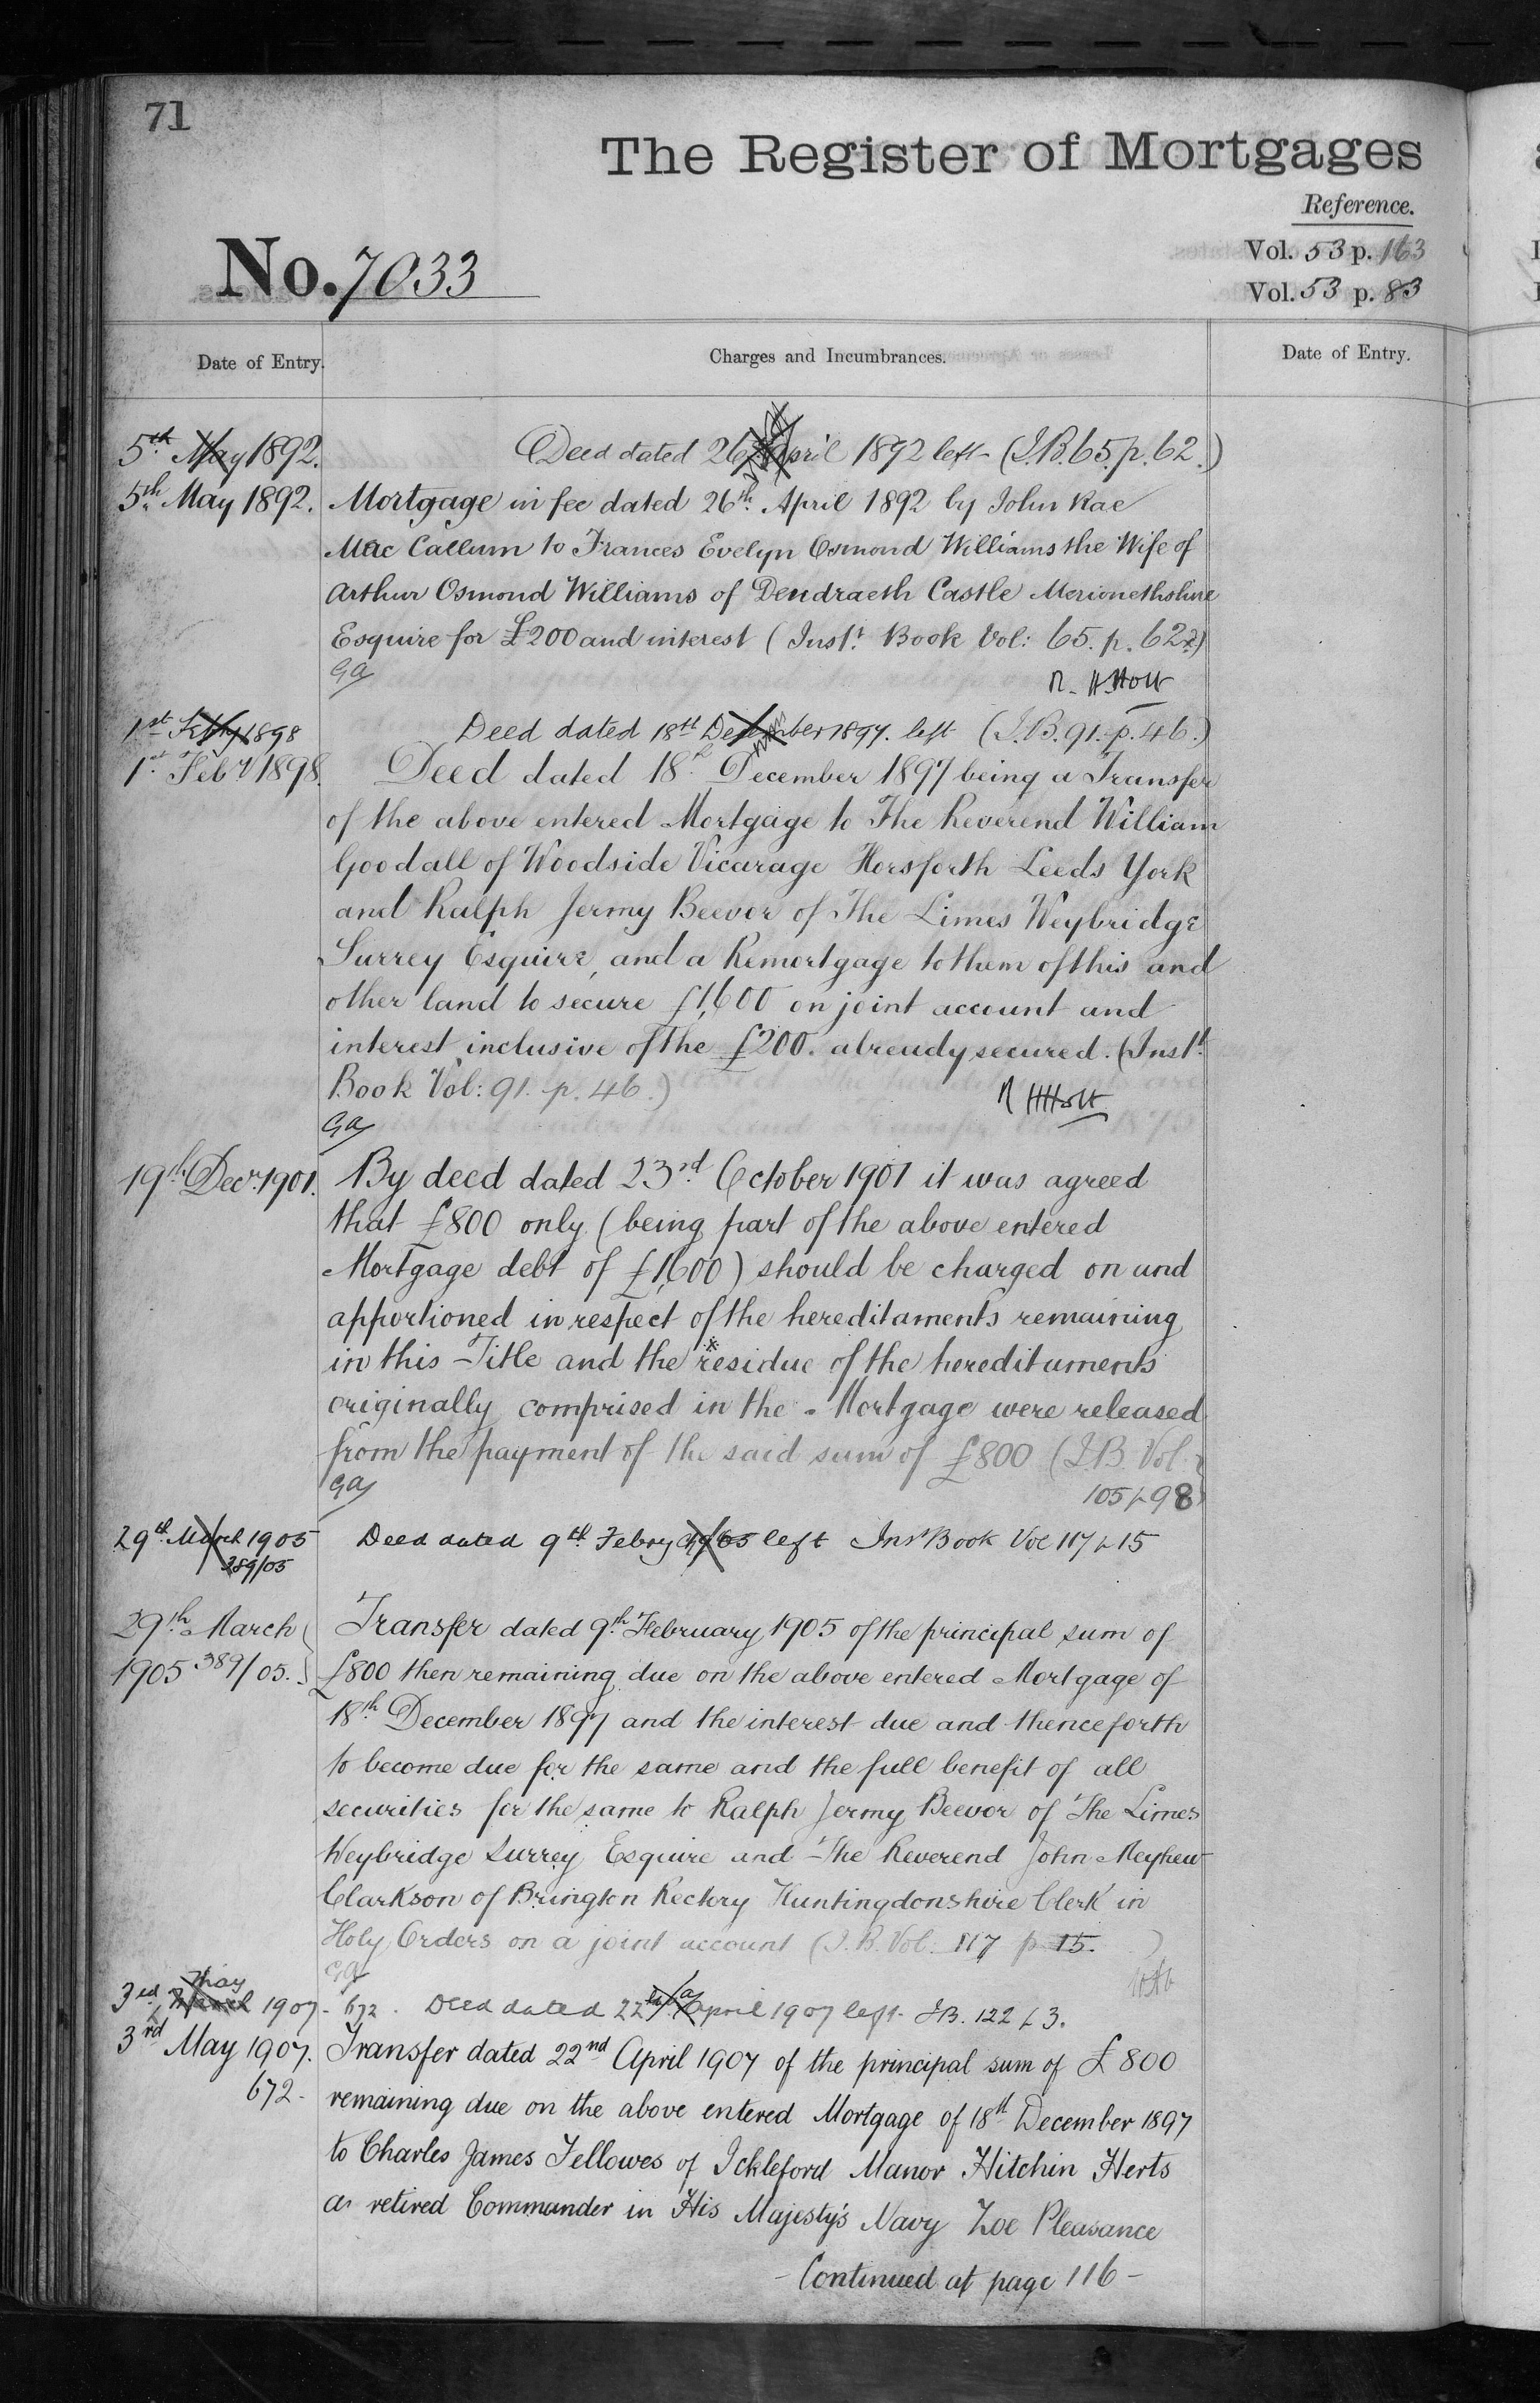 71
The Register of Mortgages
Reference.
Vol. 53 p. 163
No. 7033
Vol. 53 p. 83
Date of Entry.
Charges and Incumbrances.
Date of Entry.
5th May 1892. Deed dated 26th April 1892 left (I.B. 65. p. 62.)
5th May 1892. Mortgage in fee dated 26th April 1892 by John Rae
Mac Callum to Frances Evelyn Osmond Williams the Wife of
Arthur Osmond Williams of Dendraeth Castle Merionethshire
Esquire for £200 and interest (Inst. Book Vol: 65. p. 62)
GA
R. H. Holt
1st Feby 1898 Deed dated 18th December 1897. left (I.B. 91. p. 46.)
1st Feby 1898. Deed dated 18th December 1897 being a Transfer
of the above entered Mortgage to The Reverend William
Goodall of Woodside Vicarage Horsforth Leeds York
and Ralph Jermy Beevor of The Limes Weybridge
Surrey Esquire, and a Remortgage to them of this and
other land to secure £1,600 on joint account and
interest inclusive of the £200. already secured. (Instt.
Book Vol: 91. p. 46.)
R H Holt
GA
19th Decr. 1901. By deed dated 23rd October 1901 it was agreed
that £800 only (being part of the above entered
Mortgage debt of £1,600) should be charged on and
apportioned in respect of the hereditaments remaining
in this Title and the residue of the hereditaments
originally comprised in the Mortgage were released
from the payment of the said sum of £800 (I.B. Vol.
GA
105 p 98)
29th March 1905 Deed dated 9th Febry 1905 left Inst Book Vol 117 p 15
389/05
29th March Transfer dated 9th February 1905 of the principal sum of
1905 389/05. £800 then remaining due on the above entered Mortgage of
18th December 1897 and the interest due and thenceforth
to become due for the same and the full benefit of all
securities for the same to Ralph Jermy Beevor of The Limes
Weybridge Surrey Esquire and The Reverend John Meyhew
Clarkson of Brington Rectory Huntingdonshire Clerk in
Holy Orders on a joint account (I.B. Vol: 117 p 15. )
GA
3rd May 1907 - 672. Deed dated 22nd April 1907 left. I.B. 122 p 3.
3rd May 1907. Transfer dated 22nd April 1907 of the principal sum of £800
672. remaining due on the above entered Mortgage of 18th December 1897
to Charles James Fellowes of Ickleford Manor Hitchin Herts
a retired Commander in His Majesty's Navy Zoe Pleasance
- Continued at page 116 -